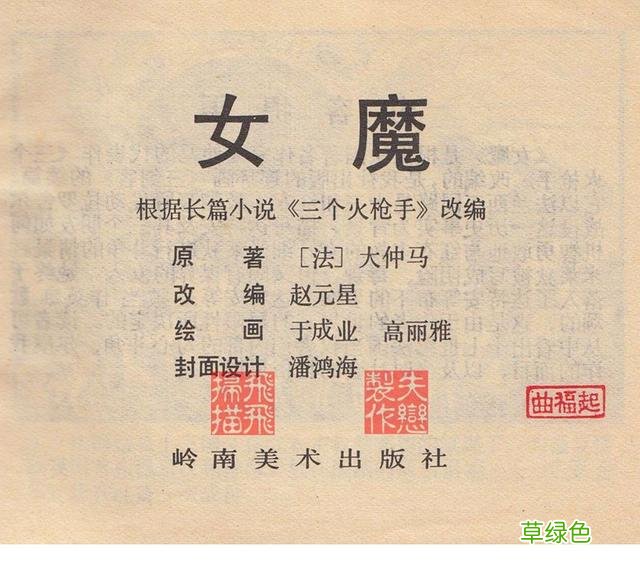 女 魔
根据长篇小说《三个火枪手》改编
原 著 ［法］大仲马
改 编 赵元星
绘 画 于成业 高丽雅
封面设计 潘鸿海
飞飞扫描
失恋製作
曲福起
岭南美术出版社
草绿色